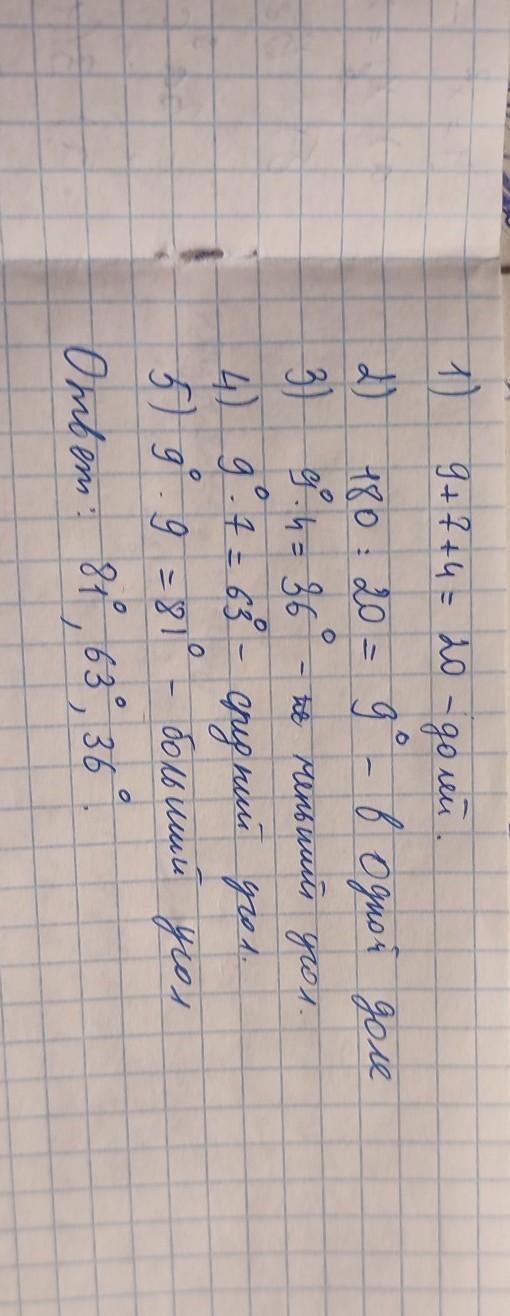 1) 9+7+4= 20 - долей.
2) 180 : 20 = 9° - в одной доле
3) 9°·4=36° - меньший угол.
4) 9°·7=63° - средний угол.
5) 9°·9=81° - больший угол
Ответ: 81°, 63°, 36°.